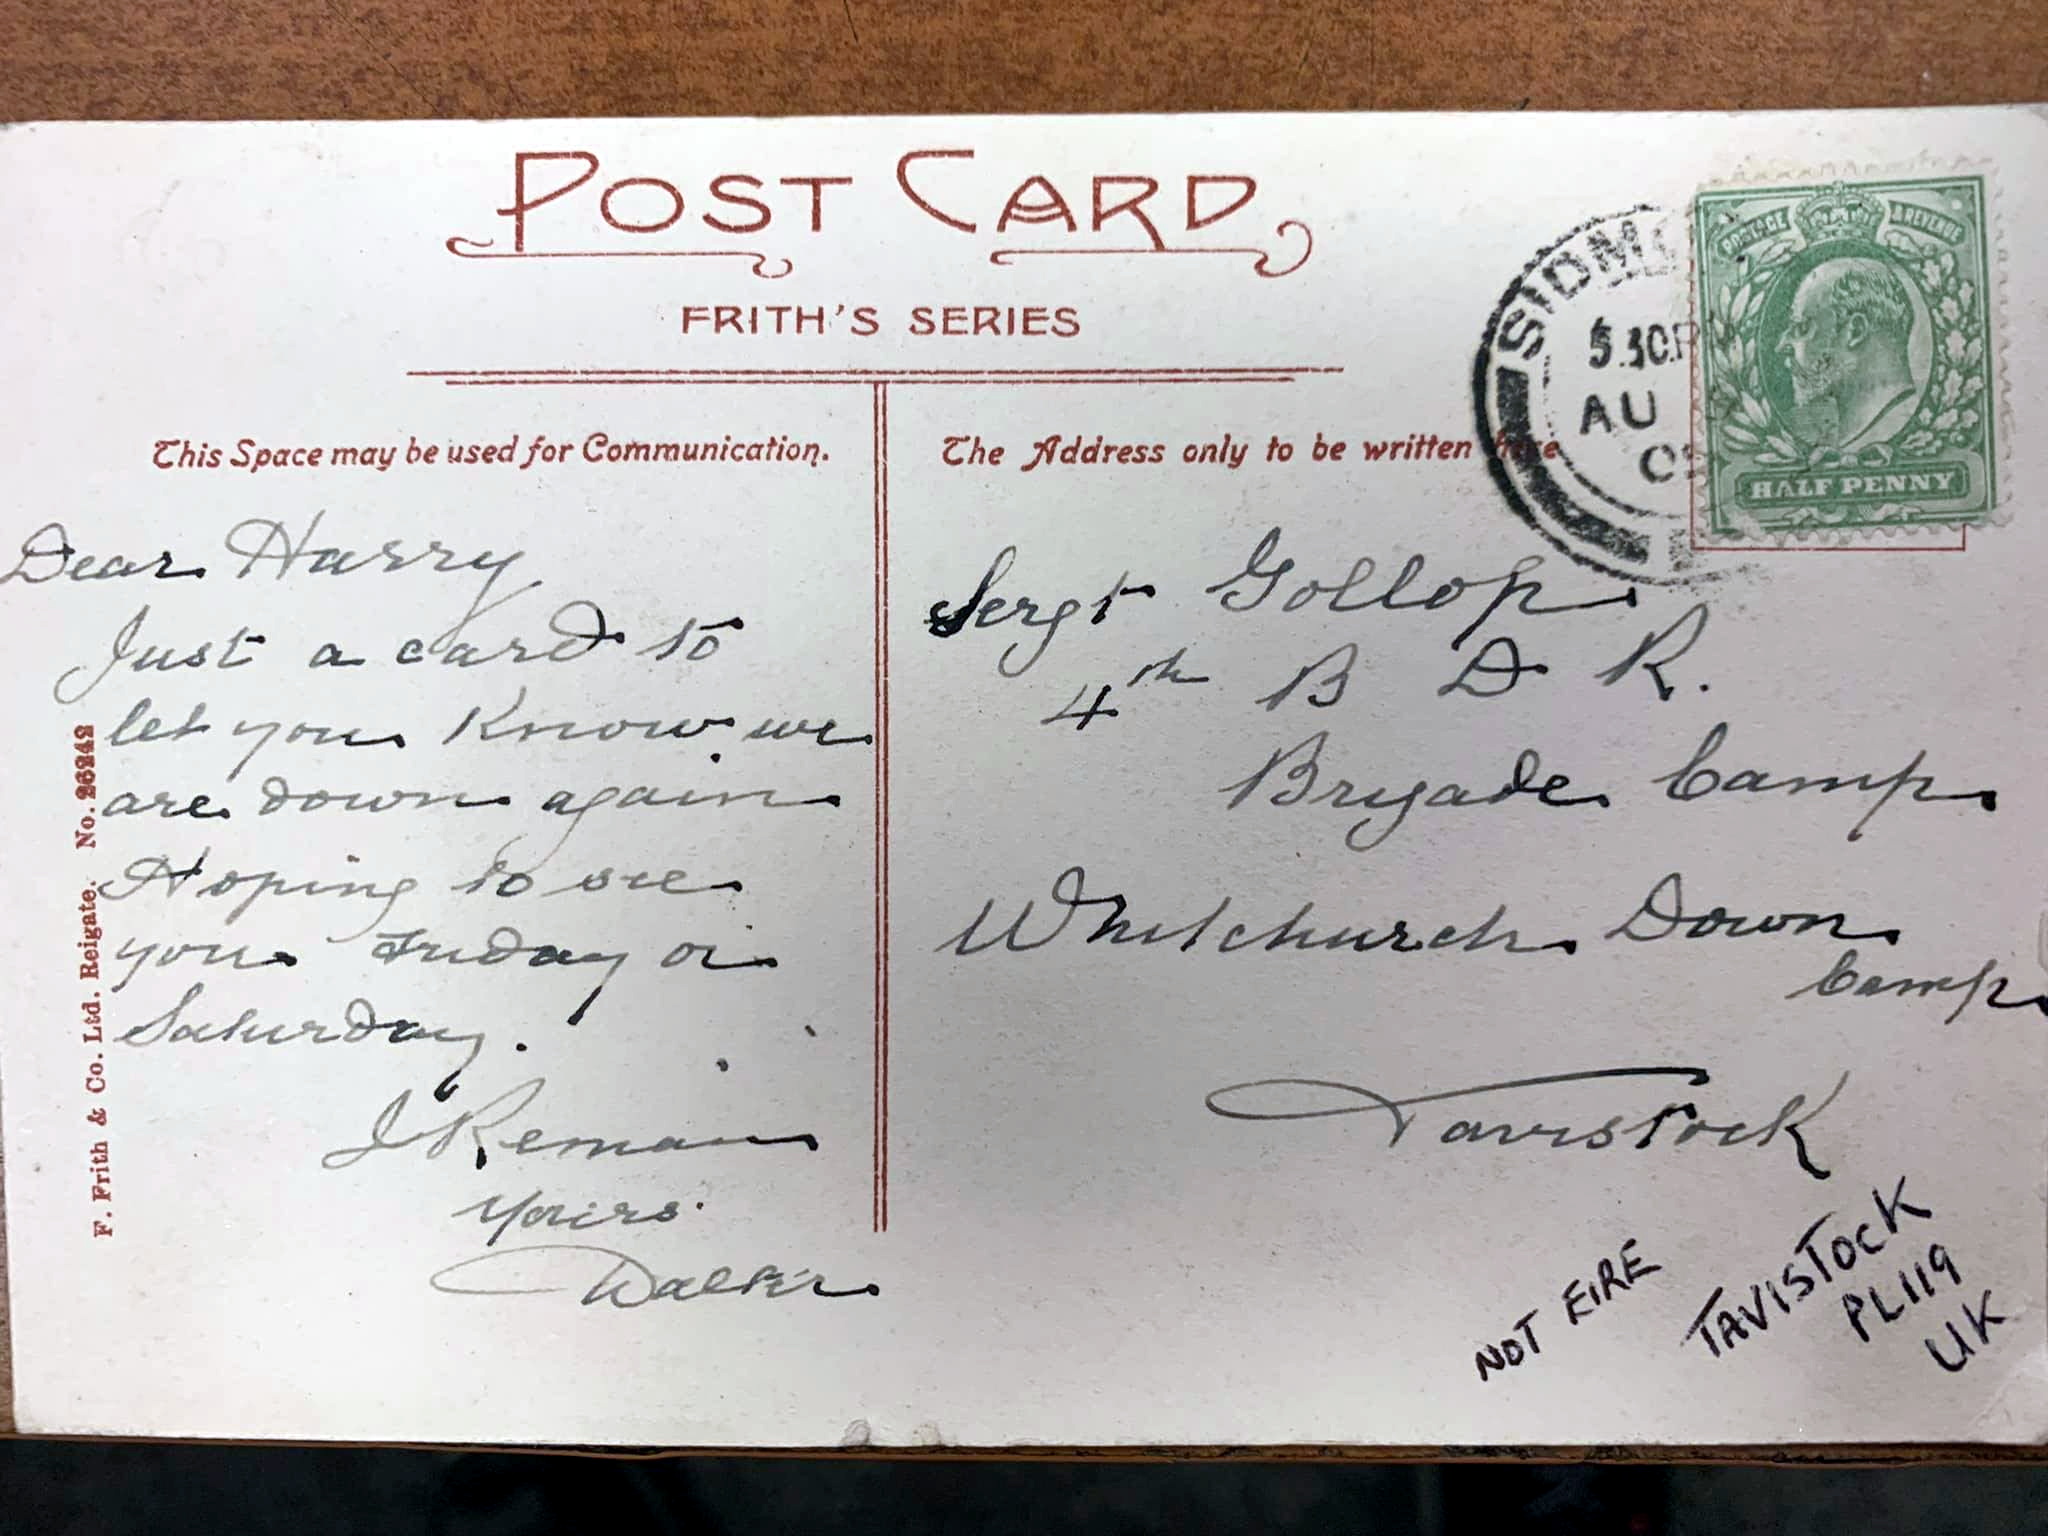 POST CARD
FRITH'S SERIES
This Space may be used for Communication.
The Address only to be written here
SIDM
5.30P
AU
POSTAGE & REVENUE
HALF PENNY
Dear Harry
Just a card to
let you know we
are down again
Hoping to see
you Friday or
Saturday.
I Remain
Yours
Walter
Sergt Gollop
4th B D R.
Brigade Camp
Whitchurch Down
Camp
Tavistock
NOT EIRE
TAVISTOCK
PL119
UK
F. Frith & Co. Ltd. Reigate. No. 26242